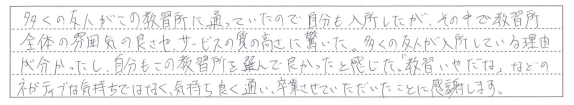 多くの友人がこの教習所に通っていたので自分も入所したが、その中で教習所
全体の雰囲気の良さ、サービスの質の高さに驚いた。多くの友人が入所している理由
が分かったし、自分もこの教習所を選んで良かったと感じた。「教習いやだな」などの
ネガティブな気持ちではなく、気持ち良く通い、卒業させていただいたことに感謝します。